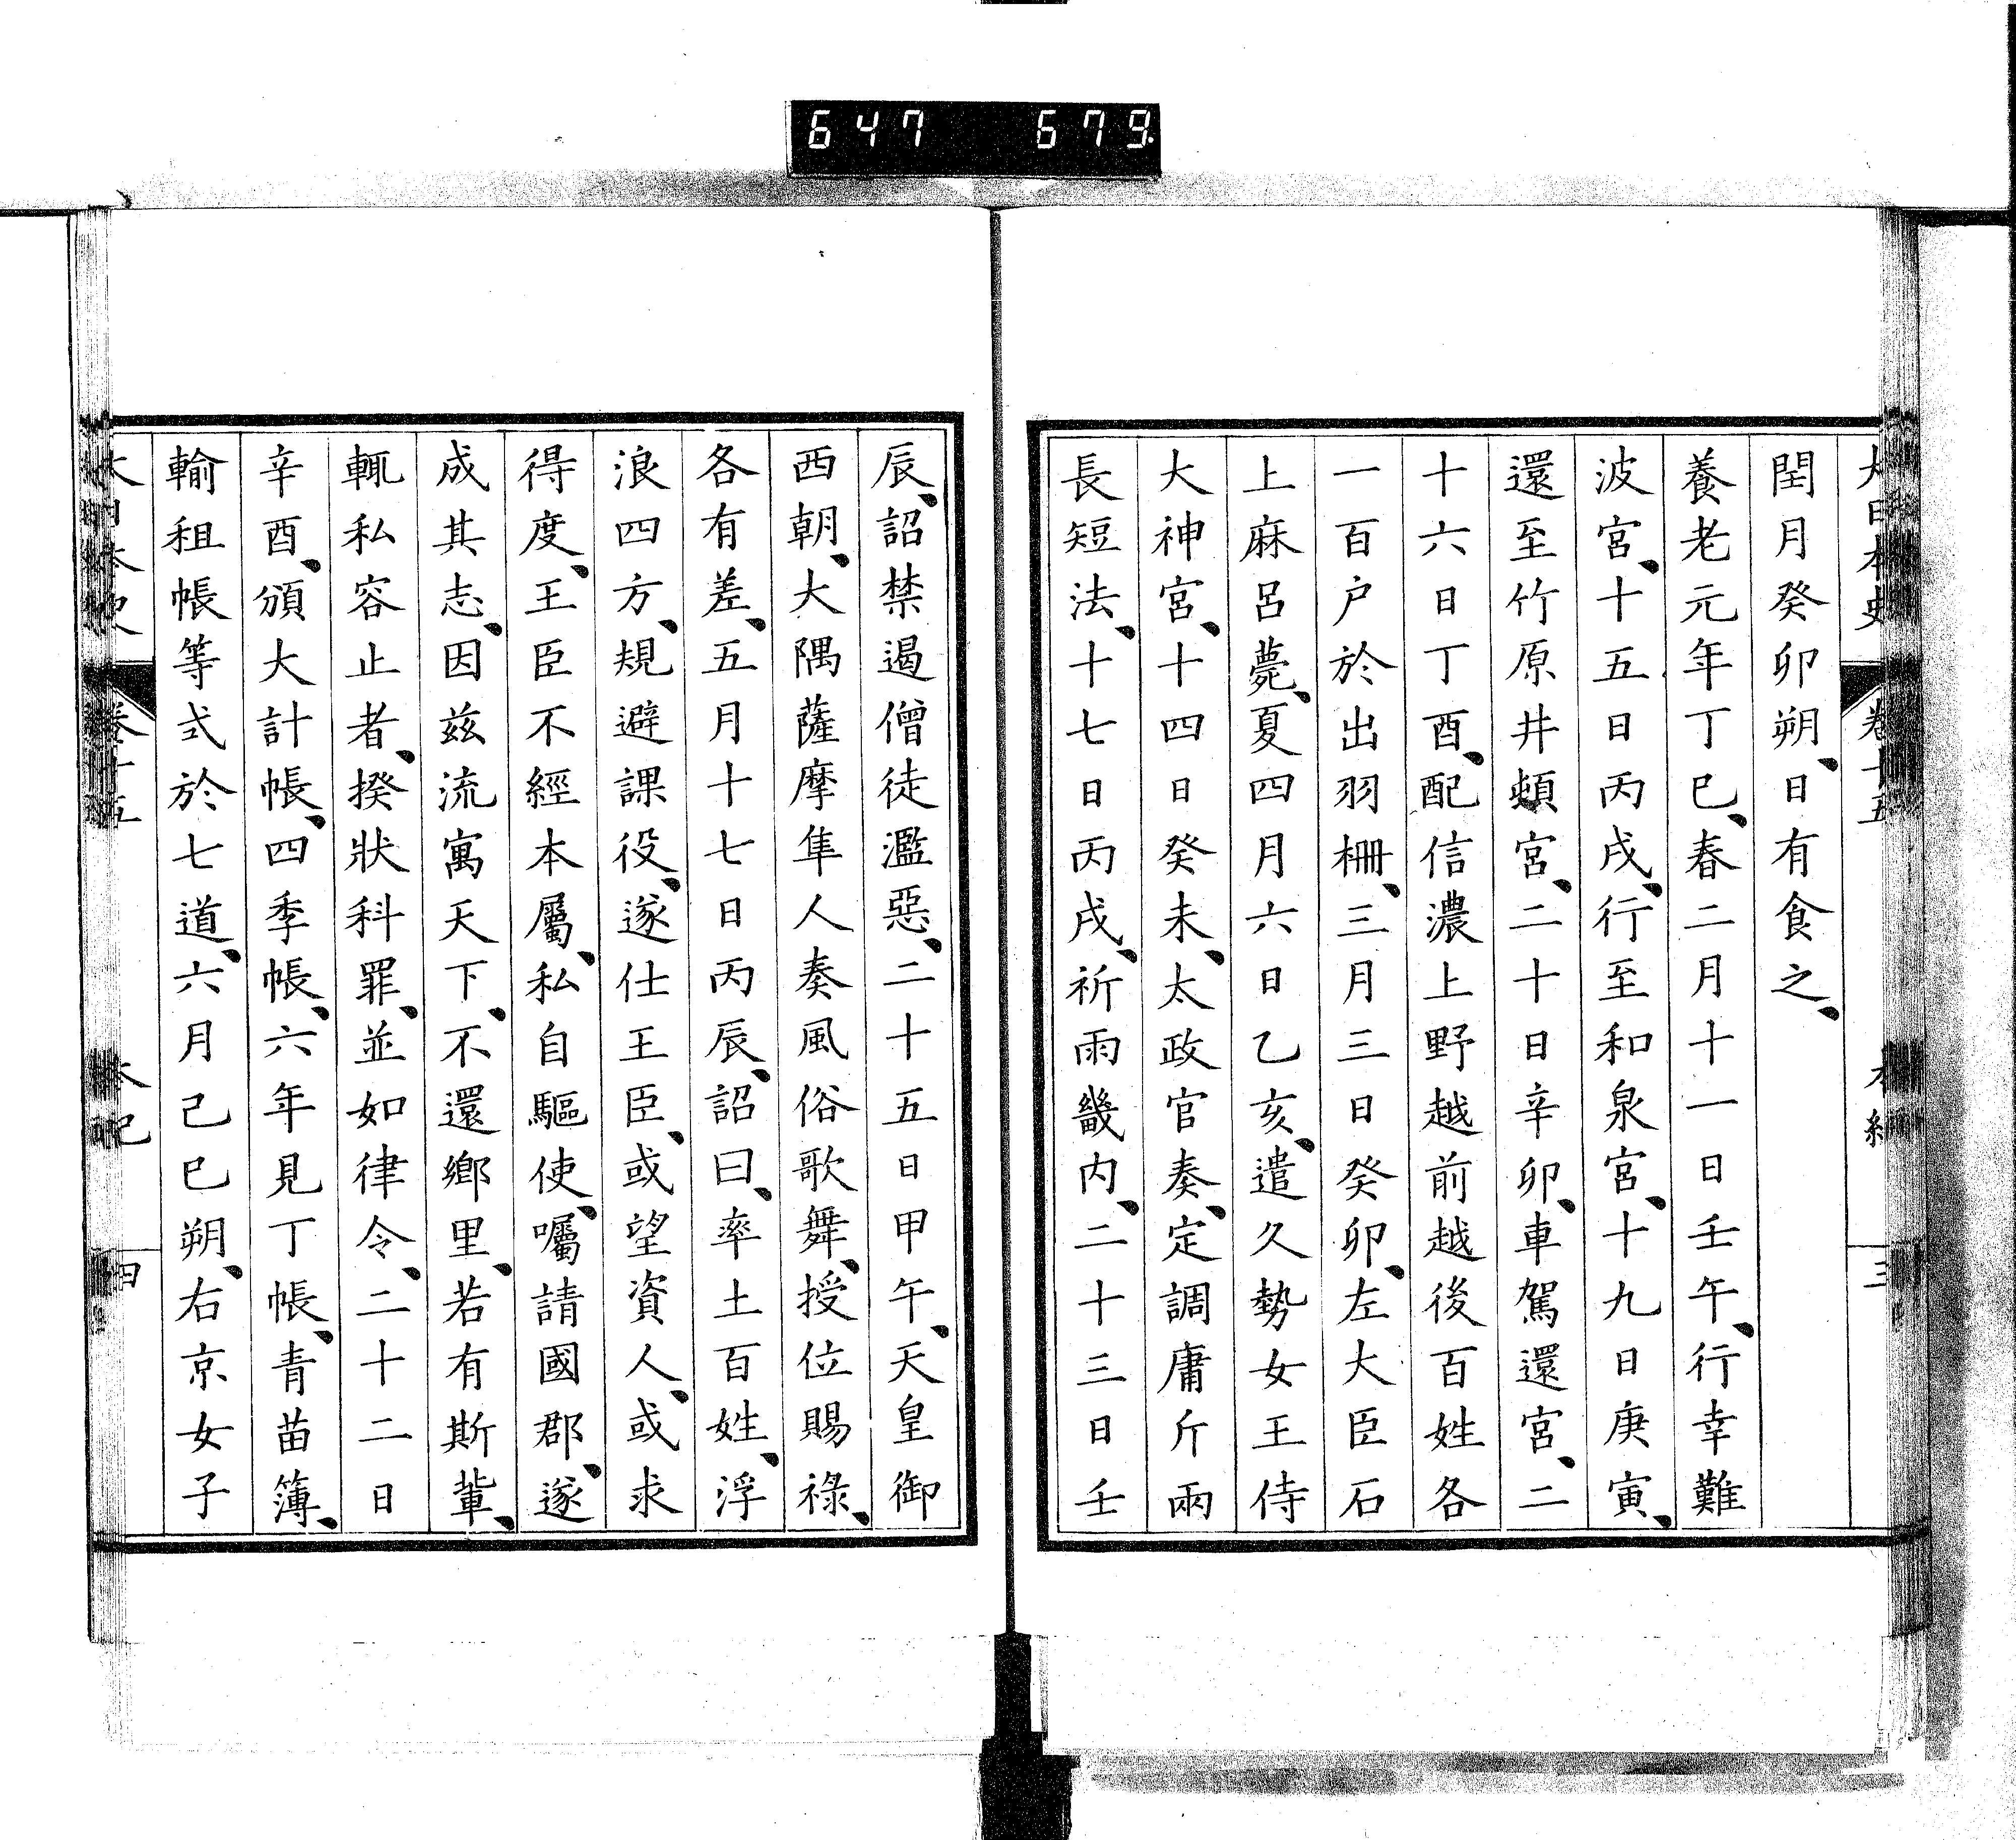 647 679.
大日本史 卷十五 本紀 三
閏月癸卯朔、日有食之、
養老元年丁巳、春二月十一日壬午、行幸難
波宮、十五日丙戌、行至和泉宮、十九日庚寅、
還至竹原井頓宮、二十日辛卯、車駕還宮、二
十六日丁酉、配信濃上野越前越後百姓各
一百戸於出羽柵、三月三日癸卯、左大臣石
上麻呂薨、夏四月六日乙亥、遣久勢女王侍
大神宮、十四日癸未、太政官奏、定調庸斤兩
長短法、十七日丙戌、祈雨畿内、二十三日壬
辰、詔禁遏僧徒濫惡、二十五日甲午、天皇御
西朝、大隅薩摩隼人奏風俗歌舞、授位賜祿、
各有差、五月十七日丙辰、詔曰、率土百姓、浮
浪四方、規避課役、遂仕王臣、或望資人、或求
得度、王臣不經本屬、私自驅使、囑請國郡、遂
成其志、因茲流寓天下、不還鄉里、若有斯輩、
輙私容止者、揆狀科罪、並如律令、二十二日
辛酉、頒大計帳、四季帳、六年見丁帳、青苗簿、
輸租帳等式於七道、六月己巳朔、右京女子
大日本史 卷十五 本紀 四